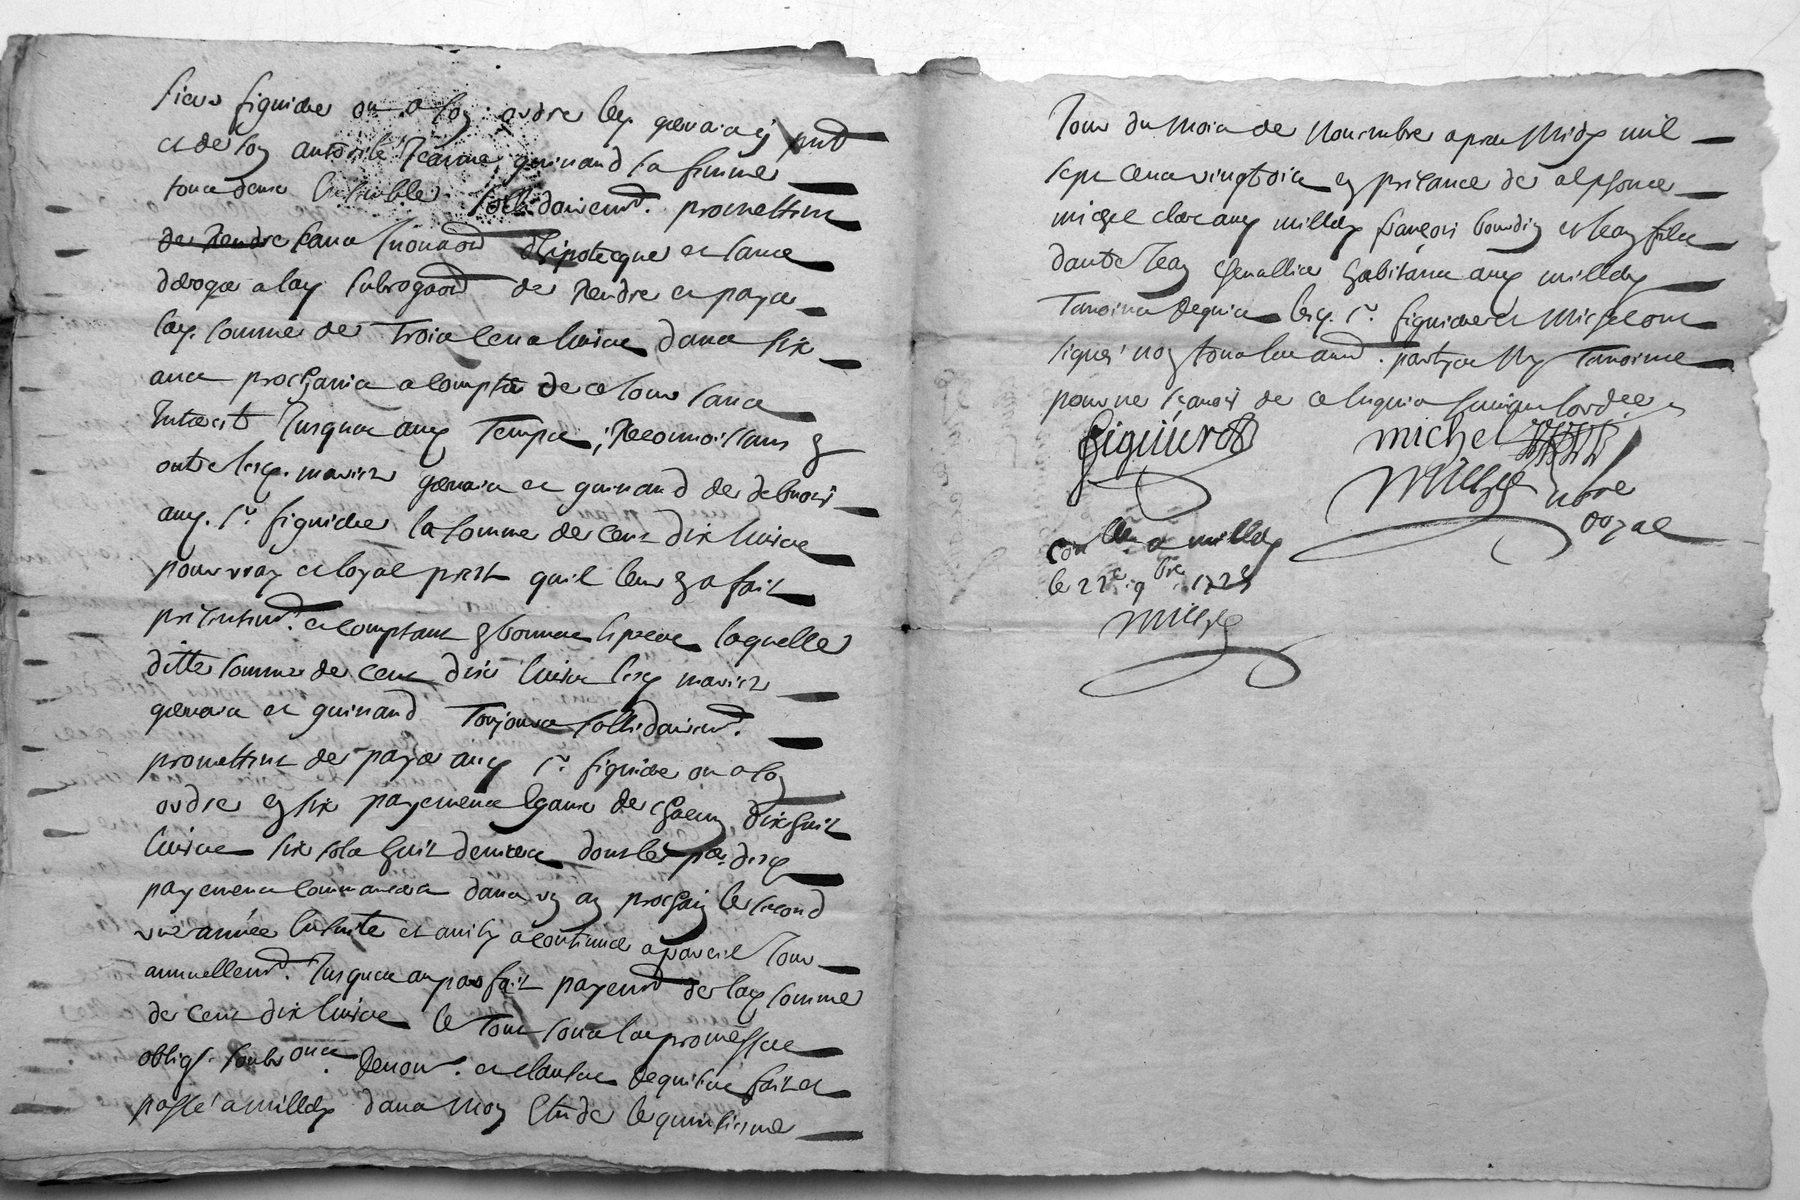 sieur figuiere ou a son ordre led. gervais et pnt
et de son autorité Jeanne guinand sa femme
tous deux Ensemble sollidairemt. promettent
de Rendre sans Innovaon d'hipotecque et sans
deroger a lad. subrogaon de Rendre et payer
lad. somme de Trois cens livres dans six
ans prochains a compter de ce Jour sans
Interest Jusques aud. Temps, Reconnoissans en
outre lesd. mariez gervais et guinand de debvoir
aud. sr. figuiere la somme de cent dix livres
pour vray et loyal prest quil leur en a fait
presentemt. et comptant en bonnes Especes laquelle
ditte somme de cent dix livres lesd. mariez
gervais et guinand Toujours sollidairemt.
promettent de payer aud. sr. figuiere ou a son
ordre en six payemens Egaux de chacun dixhuit
livres six sols huit deniers dont le per. desd.
payemens commencera dans un an prochain le second
une année Ensuite et ainsy a continuer a pareil Jour
annuellemt. Jusques au parfait payemt de lad. somme
de cent dix livres le Tout sous les promesses
obligs. soubs ons. Renon. et clauses Requises fait et
passé a millery dans mon Etude le quinsieme
Jour du mois de Novembre apres Midy mil
sept cens vingt six en presence de alphonce
michel clerc aud. millery françois bourdin et leon fils
dautre Jean chevallier habitans aud. millery
Tesmoins Requis lesd. sr. figuiere et Michel ont
signé non tous les autres. partyes Ny Tesmoins
pour ne sçavoir de ce Enquis suivant lordce.
figuiere
michel
notre
royal
conllé a millery
le 22e. 9bre. 172